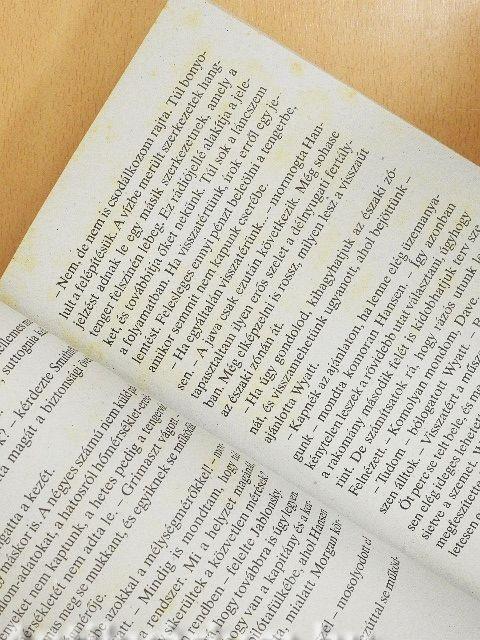 – Nem, de nem is csodálkozom rajta. Túl bonyo-
lult a felépítésük. A vízbe merült szerkezetek hang-
jelzést adnak le egy másik szerkezetnek, amely a
tenger felszínén lebeg. Ez rádiójellé alakítja a jele-
ket, és továbbítja őket nekünk. Túl sok a láncszem
a folyamatban. Ha visszatérünk, írok erről egy je-
lentést. Felesleges ennyi pénzt beleölni a tengerbe,
amikor semmit nem kapunk cserébe.
– Ha egyáltalán visszatérünk, – mormogta Han-
sen. – A java csak ezután következik. Még sohase
tapasztaltam ilyen erős szelet a délnyugati fertály-
ban. Még elképzelni is rossz, milyen lesz a visszaút
az északi zónán át.
– Ha úgy gondolod, kihagyhatjuk az északi zó-
nát, és visszamehetünk ugyanott, ahol bejöttünk –
ajánlotta Wyatt.
– Kapnék az ajánlaton, ha lenne elég üzemanya-
gunk – mondta komoran Hansen. – Így azonban
kénytelen leszek a rövidebb utat választani, úgyhogy
a rakomány második felét is kidobhatjuk terv sze-
rint. De számítsatok rá, hogy rázós utunk
Felnézett. – Komolyan mondom, Dave.
– Tudom – bólogatott Wyatt. –
szen álltok. – Visszatért a műsz
Öt perc se telt bele, és me
sen elég ideges lehetett
sietve a szemet. W
megfeszített
letesen e
suttogna
– kérdezte Smith
magát a biztonsági
gatta a kezét.
máskor is. A négyes számú nem küldi
om-adatokat, a hatosról hőmérséklet-ér
eket nem kaptunk, a hetes pedig a tengervíz
rsékletét nem adta le. – Grimaszt vágott.
mas meg se mukkant, és egyiknek se működik
érője.
azokkal a mélységmérőkkel –
ott. – Mindig is mondtam, hogy
rendszer. Mi a helyzet magunk
sikerültek a közvetlen mérések?
rendben – felelte Jablonsky
hogy továbbra is így legyen
hogy van a kapitány és a
ilótafülkébe, ahol Hansen
mialatt Morgan
el – mosolyodott el